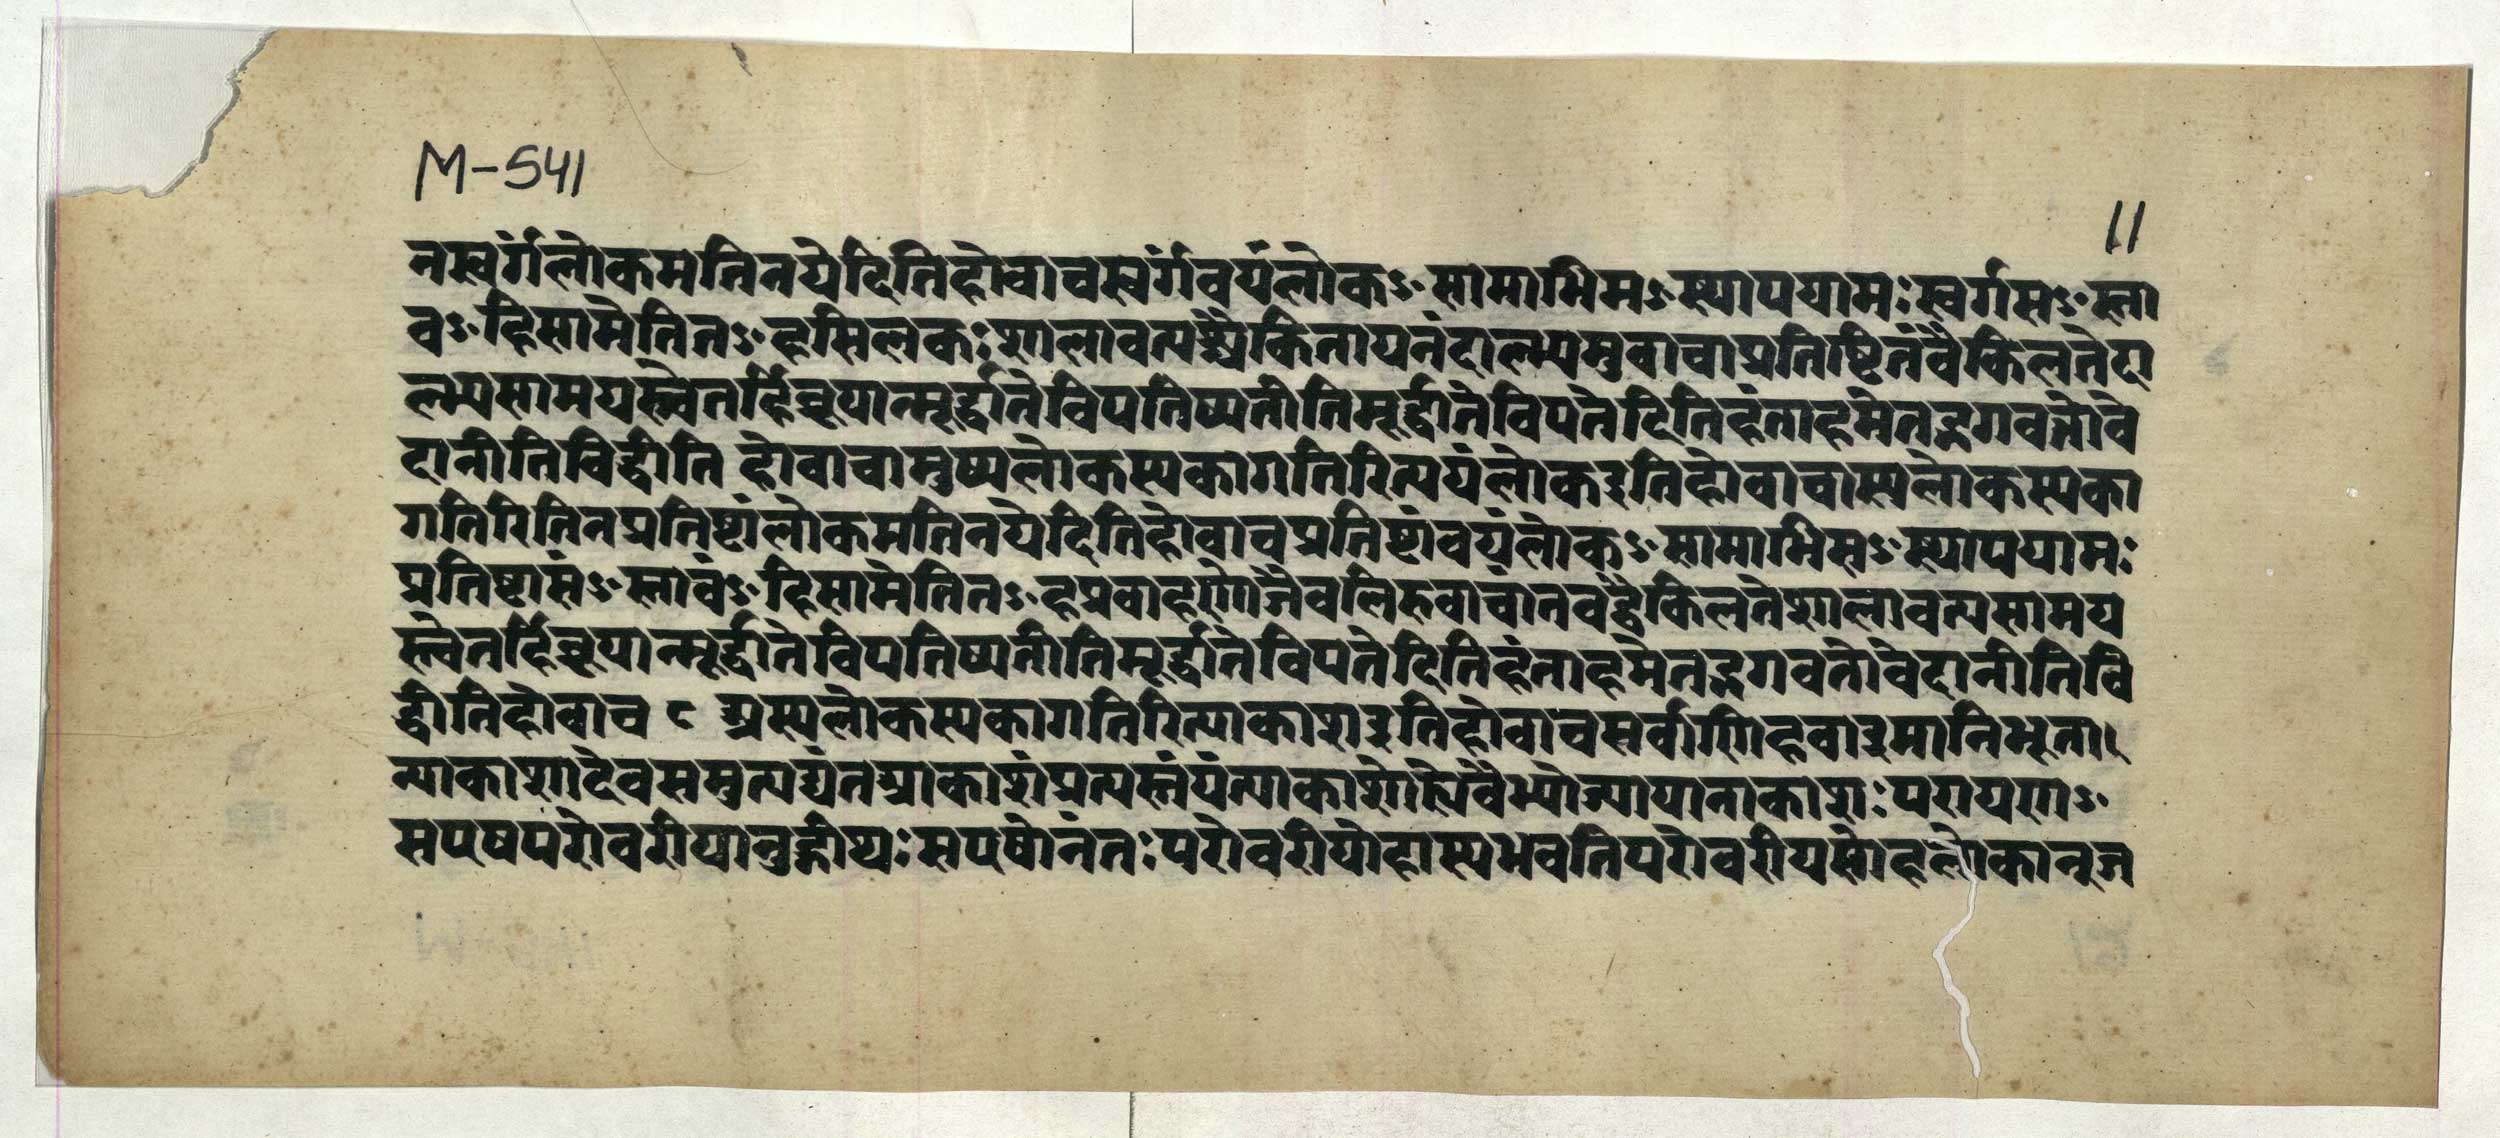 M-541
11
नस्वर्गंलोकमतिनयेदितिहोवाचस्वर्गंवयंलोकꣳसामाभिसꣳस्थापयामःस्वर्गसꣳस्ता
वꣳहिसामेतितꣳहसिलकःशालावत्यश्चैकितायनंदाल्भ्यमुवाचाप्रतिष्टितंवैकिलतेदा
ल्भ्यसामयस्त्वेतर्हिब्रूयान्मूर्द्धातेविपतिष्यतीतिमूर्द्धातेविपतेदितिहंताहमेतद्भगवतोवे
दानीतिविद्धीति होवाचामुष्यलोकस्यकागतिरित्ययंलोकइतिहोवाचास्यलोकस्यका
गतिरितिनप्रतिष्टांलोकमतिनयेदितिहोवाचप्रतिष्टांवयंलोकꣳसामाभिसꣳस्थापयामः
प्रतिष्टासंꣳस्तावंꣳहिसामेतितꣳहप्रवाहणोजैवलिरुवाचांतवद्वैकिलतेशालावत्यसामय
स्त्वेतर्हिब्रूयान्मूर्द्धातेविपतिष्यतीतिमूर्द्धातेविपतेदितिहंताहमेतद्भगवतोवेदानीतिवि
द्धीतिहोवाच ८ अस्यलोकस्यकागतिरित्याकाशइतिहोवाचसर्वाणिहवाइमानिभूता
न्याकाशादेवसमुत्पद्यंतआकाशंप्रत्यस्तंयंत्याकाशोह्येवैभ्योज्यायानाकाशःपरायणꣳ
सएषपरोवरीयानुद्गीथःसएषोनंतःपरोवरीयोहास्यभवतिपरोवरीयसोहलोकान्ज